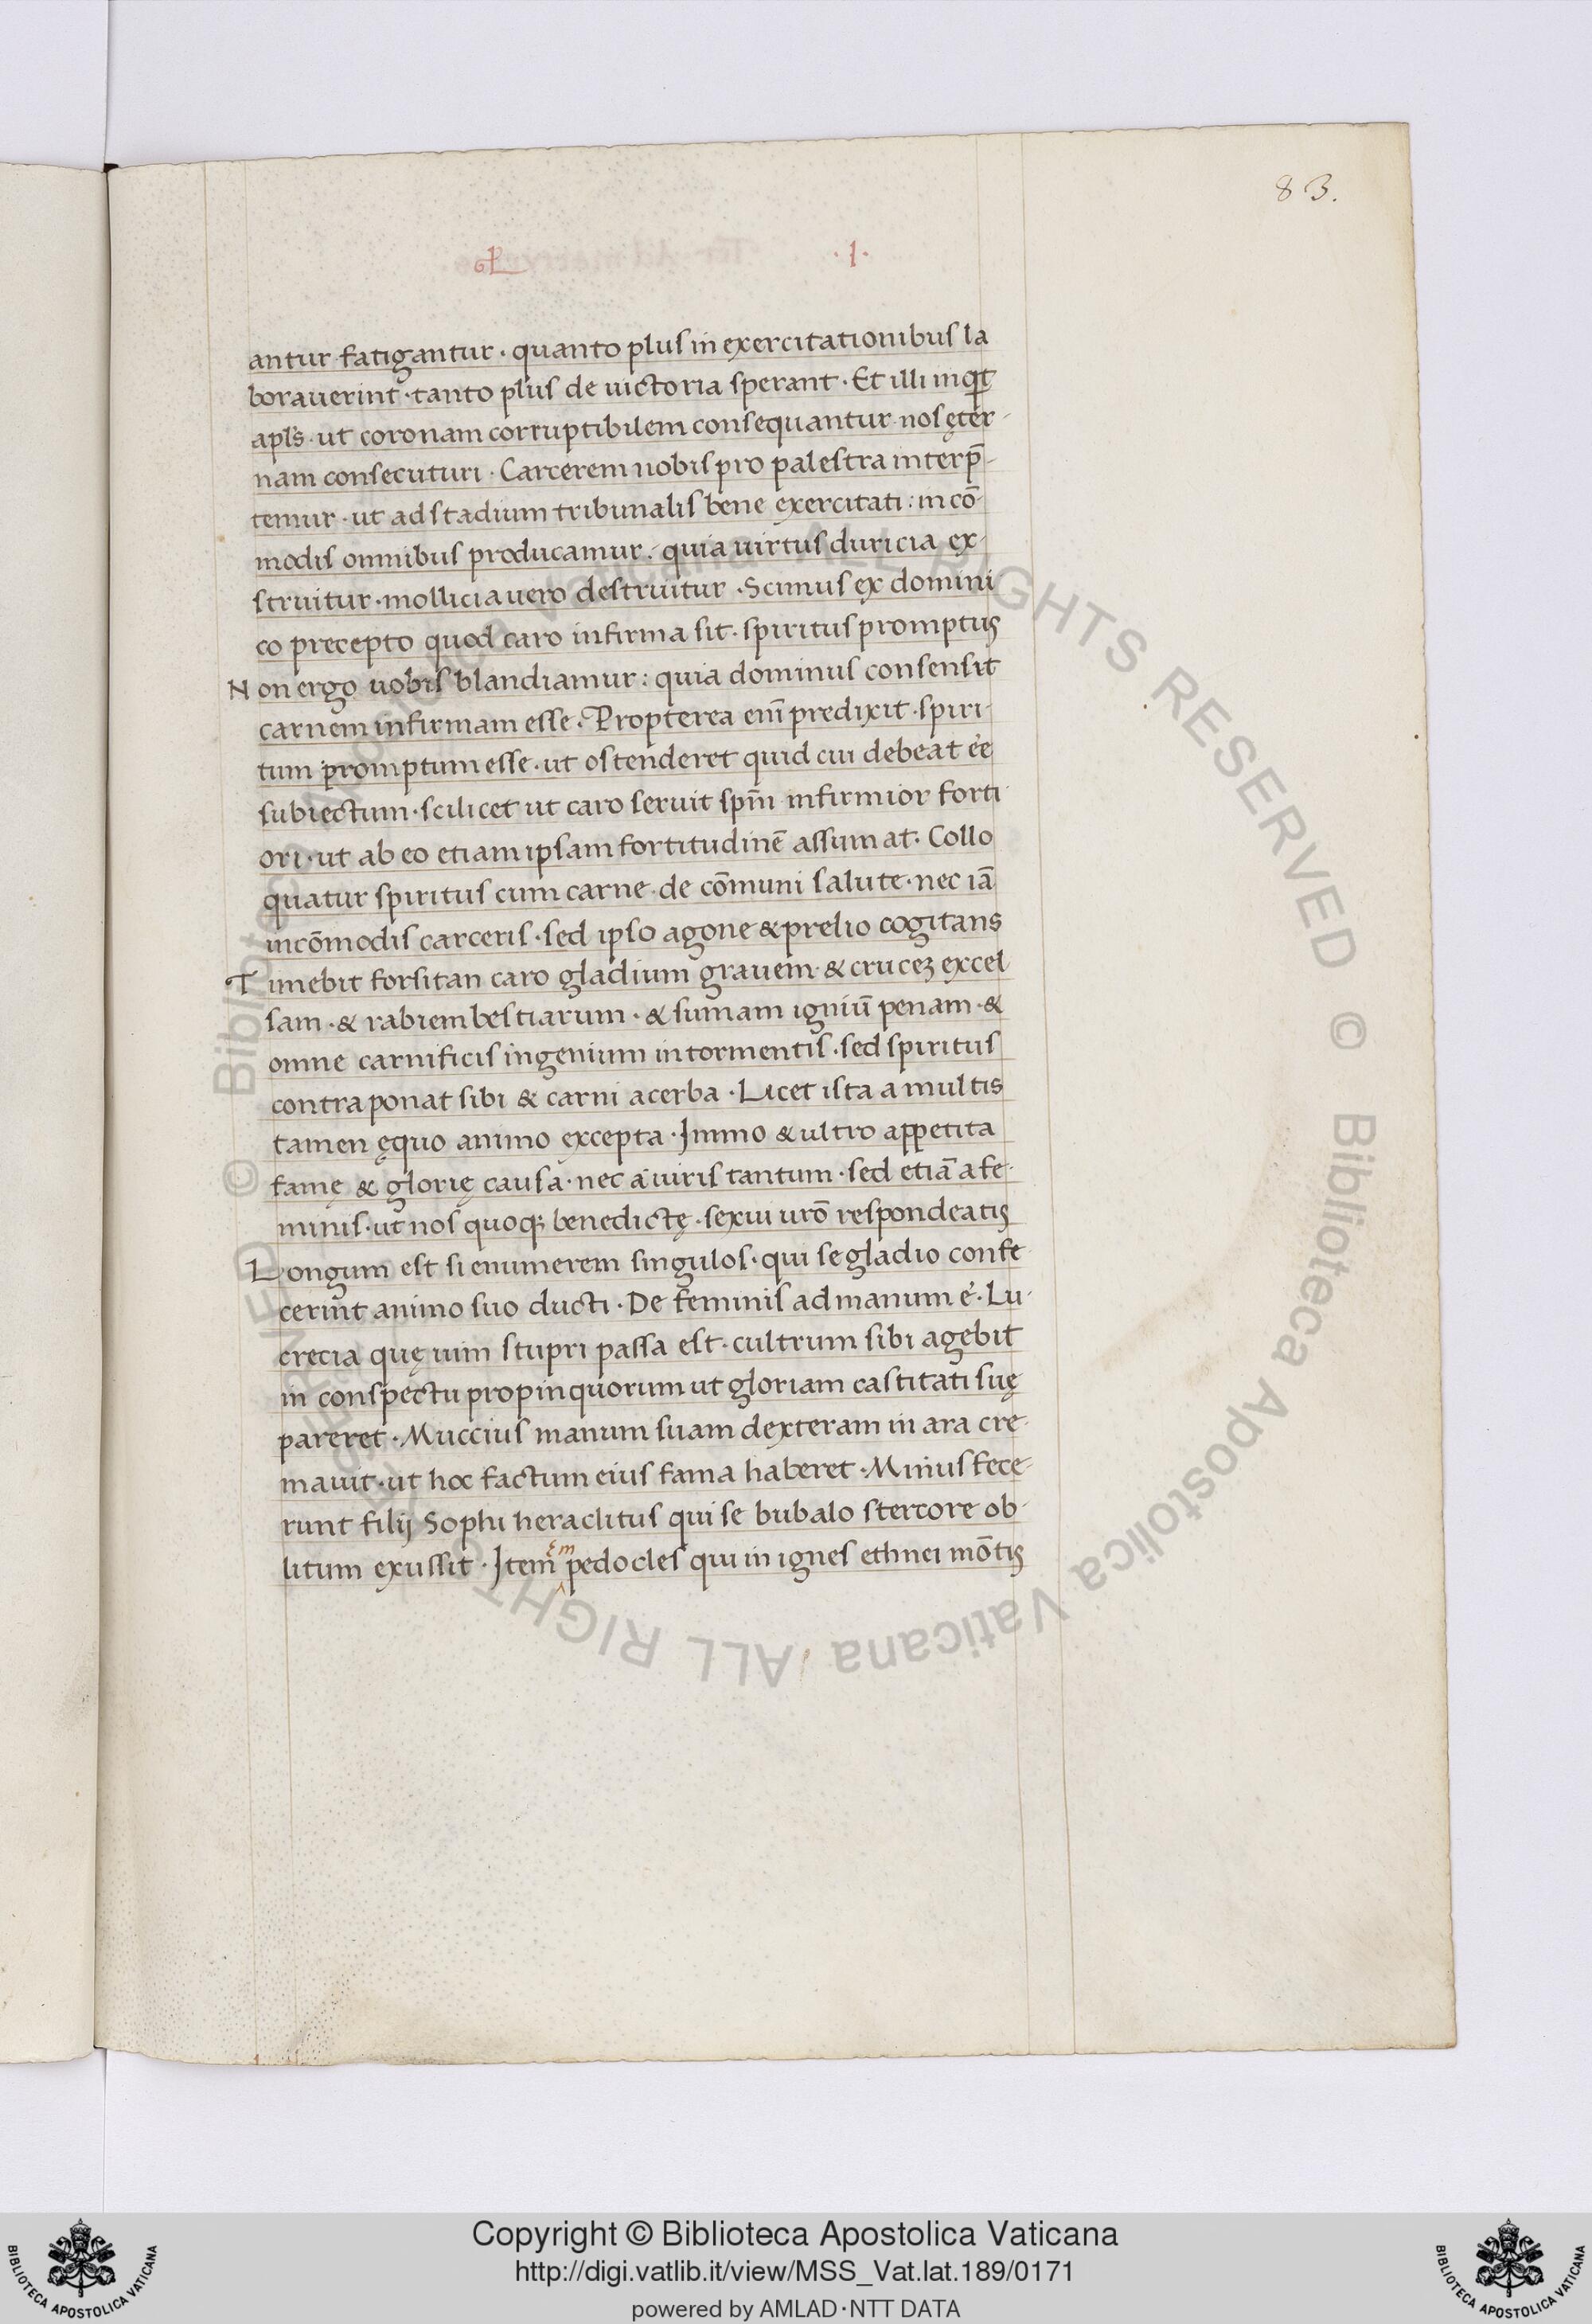 83.
L · I ·
antur fatigantur · quanto plus in exercitationibus la
borauerint · tanto plus de uictoria sperant · Et illi inqͥt
apl's · ut coronam corruptibilem consequantur nos ęter-
nam consecuturi · Carcerem nobis pro palestra interp̄-
temur · ut ad stadium tribunalis bene exercitati : incō-
modis omnibus producamur · quia uirtus duricia ex-
struitur · mollicia uero destruitur · Scimus ex domini
co precepto quod caro infirma sit · spiritus promptus
Non ergo uobis blandiamur : quia dominus consensit
carnem infirmam esse · Propterea enī predixit · spiri-
tum promptum esse · ut ostenderet quid cui debeat eē
subiectum · scilicet ut caro seruit spīn infirmior forti
ori · ut ab eo etiam ipsam fortitudinē assumat · Collo
quatur spiritus cum carne · de cōmuni salute · nec iā
incōmodis carceris · sed ipso agone & prelio cogitans
Timebit forsitan caro gladium grauem · & crucez excel
sam · & rabiem bestiarum · & sumam igniū penam · &
omne carnificis ingenium in tormentis · sed spiritus
contra ponat sibi & carni acerba · Licet ista a multis
tamen ęquo animo excepta · Immo & ultro appetita
famę & glorię causa · nec a uiris tantum · sed etiā a fe-
minis · ut nos quoq; benedictę · sexui urō respondeatis
Longum est si enumerem singulos · qui se gladio confe
cerint animo suo ducti · De feminis ad manum ē · Lu-
crecia quę uim stupri passa est · cultrum sibi agebit
in conspectu propinquorum ut gloriam castitati suę
pareret · Muccius manum suam dexteram in ara cre-
mauit · ut hoc factum eius fama haberet · Minus fece-
runt filij Sophi heraclitus qui se bubalo stercore ob-
litum exussit · Item ęm pedocles qui in ignes ethnei mōtis
© Biblioteca Apostolica Vaticana ALL RIGHTS RESERVED © Biblioteca Apostolica Vaticana ALL RIGHTS RESERVED
Copyright © Biblioteca Apostolica Vaticana
http://digi.vatlib.it/view/MSS_Vat.lat.189/0171
powered by AMLAD·NTT DATA
BIBLIOTECA APOSTOLICA VATICANA
BIBLIOTECA APOSTOLICA VATICANA